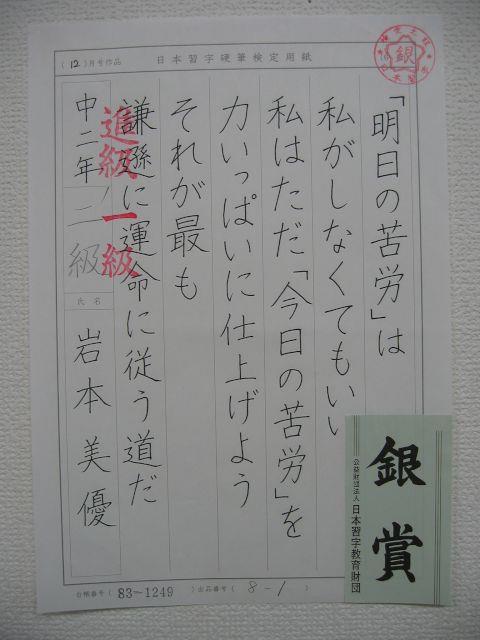 (12)月号作品
日本習字硬筆検定用紙
銀
「明日の苦労」は
私がしなくてもいい
私はただ「今日の苦労」を
力いっぱいに仕上げよう
それが最も
謙遜に運命に従う道だ
進級一級
中二年
二級
氏名
岩本美優
台帳番号(83-1249)出品番号(8-1)
銀賞
公益財団法人
日本習字教育財団